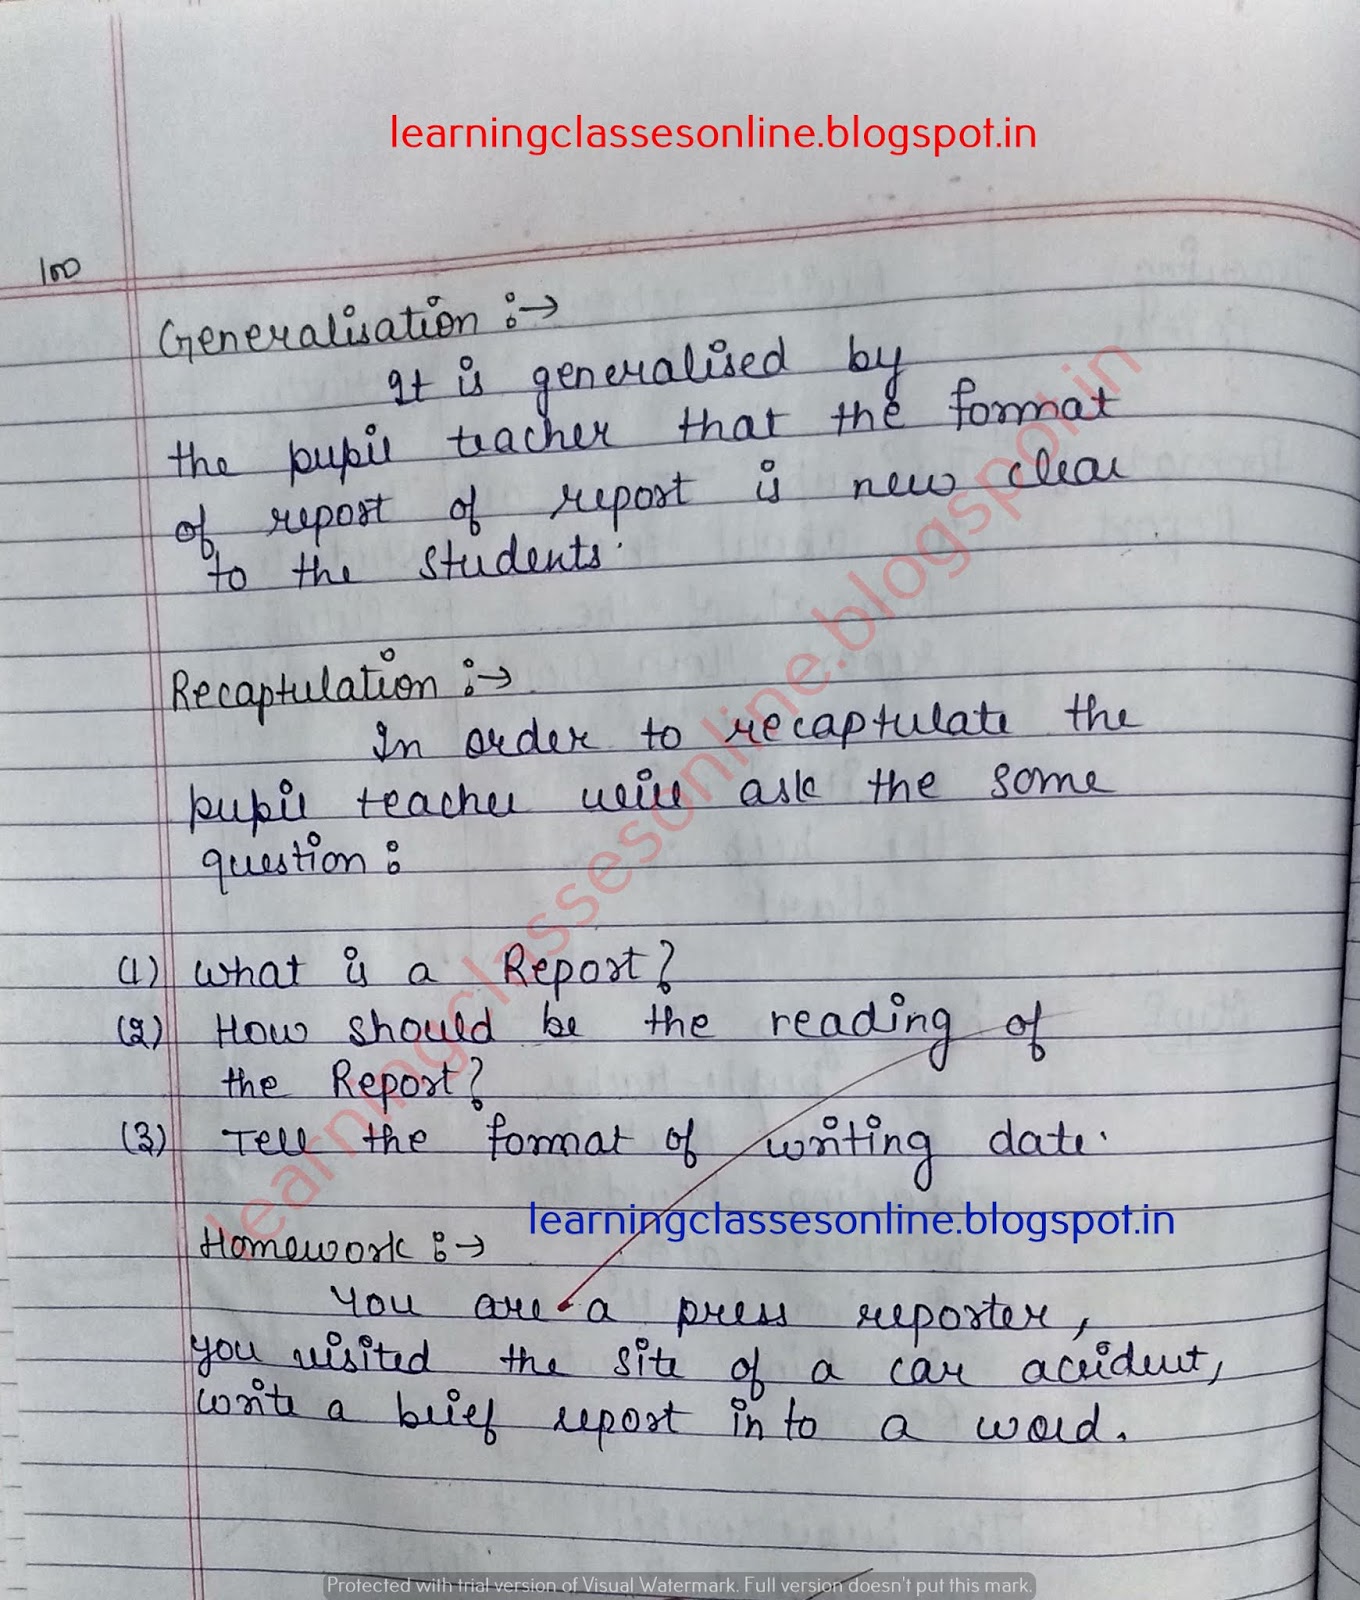 learningclassesonline.blogspot.in
100
Generalisation :→
It is generalised by
the pupil teacher that the format
of report of report is new clear
to the students.
Recaptulation :→
In order to recaptulate the
pupil teacher will ask the some
question :
(1) What is a Report?
(2) How should be the reading of
the Report?
(3) Tell the format of writing date.
learningclassesonline.blogspot.in
Homework :→
You are a press reporter,
you visited the site of a car accident,
write a brief report in to a word.
learningclassesonline.blogspot.in
Protected with trial version of Visual Watermark. Full version doesn't put this mark.